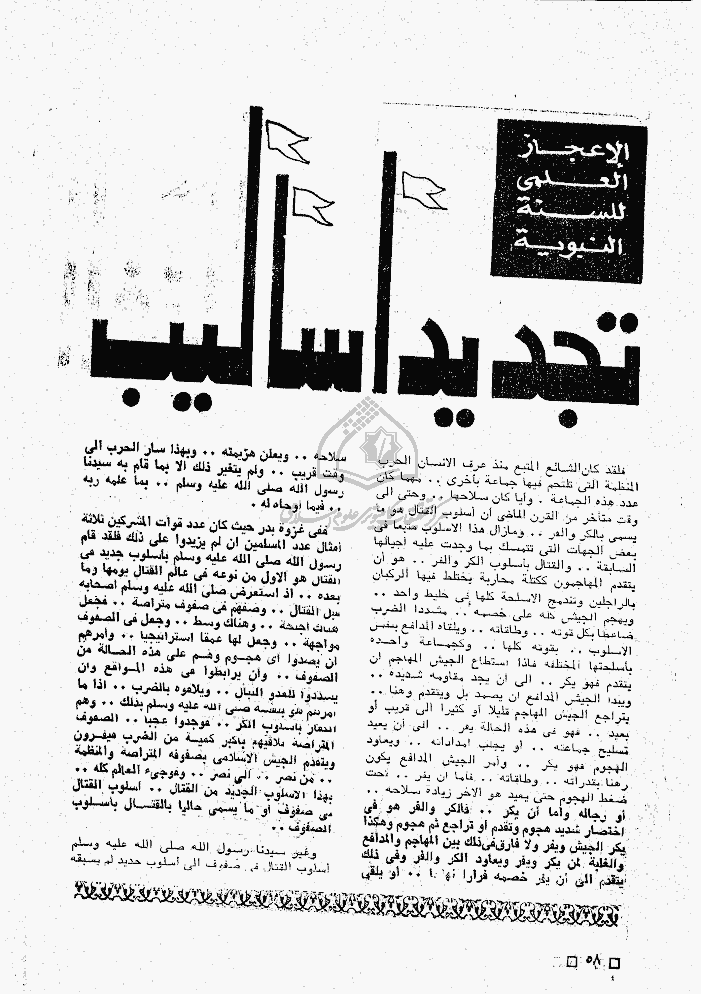 الإعجاز
العلمى
للسنة
النبوية
تجديد أساليب
فلقد كان الشائع المتبع منذ عرف الانسان الحرب
المنظمة التى تلتحم فيها جماعة بأخرى .. مهما كان
عدد هذه الجماعة . وأيا كان سلاحها .. وحتى الى
وقت متأخر من القرن الماضى أن أسلوب القتال هو ما
يسمى بالكر والفر .. ومازال هذا الاسلوب متبعا فى
بعض الجهات التى تتمسك بما وجدت عليه أجيالها
السابقة .. والقتال بأسلوب الكر والفر .. هو أن
يتقدم المهاجمون ككتلة محاربة يختلط فيها الركبان
بالراجلين وتندمج الاسلحة كلها فى خليط واحد ..
ويهجم الجيش كله على خصمه .. مشددا الضرب
ضاغطا بكل قوته .. وطاقاته .. ويلقاه المدافع بنفس
الاسلوب .. بقوته كلها .. وكجماعة واحدة
بأسلحتها المختلفة فاذا استطاع الجيش المهاجم ان
يتقدم فهو يكر .. الى ان يجد مقاومة شديدة ..
ويبدا الجيش المدافع ان يصمد بل ويتقدم وهنا ..
يتراجع الجيش المهاجم قليلا أو كثيرا الى قريب أو
بعيد .. فهو فى هذه الحالة يفر .. الى أن يعيد
تسليح جماعته .. أو يجلب امداداته .. ويعاود
الهجوم فهو يكر .. وأمر الجيش المدافع يكون
رهنا بقدراته .. وطاقاته .. فاما ان يفر .. تحت
ضغط الهجوم حتى يعيد هو الآخر زيادة سلاحه ..
أو رجاله وأما أن يكر .. فالكر والفر هو فى
اختصار شديد هجوم وتقدم او تراجع ثم هجوم وهكذا
يكر الجيش ويفر ولا فارق فى ذلك بين المهاجم والمدافع
والغلبة لمن يكر ويفر ويعاود الكر والفر وفى ذلك
يتقدم الى أن يفر خصمه فرارا نهائيا .. أو يلقى
سلاحه .. ويعلن هزيمته .. وبهذا سار الحرب الى
وقت قريب .. ولم يتغير ذلك الا بما قام به سيدنا
رسول الله صلى الله عليه وسلم .. بما علمه ربه
.. فيما أوحاه له .
ففى غزوة بدر حيث كان عدد قوات المشركين ثلاثة
أمثال عدد المسلمين ان لم يزيدوا على ذلك فلقد قام
رسول الله صلى الله عليه وسلم بأسلوب جديد فى
القتال هو الاول من نوعه فى عالم القتال يومها وما
بعده .. اذ استعرض صلى الله عليه وسلم أصحابه
قبل القتال .. وصفهم فى صفوف متراصة .. فجعل
هناك أجنحة .. وهناك وسط .. وجعل فى الصفوف
مواجهة .. وجعل لها عمقا استراتيجيا .. وأمرهم
ان يصدوا اى هجوم وهم على هذه الحالة من
الصفوف .. وأن يرابطوا فى هذه المواقع وان
يسددوا للعدو النبال .. ويلاقوه بالضرب .. اذا ما
أمرهم هو بنفسه صلى الله عليه وسلم بذلك .. وهم
الكفار بأسلوب الكر .. فوجدوا عجبا .. الصفوف
المتراصة تلاقيهم بأكبر كمية من الضرب فيفرون
ويتقدم الجيش الاسلامى بصفوفه المتراصة والمنظمة
.. من نصر .. الى نصر .. وفوجىء العالم كله ..
بهذا الاسلوب الجديد من القتال .. أسلوب القتال
فى صفوف أو ما يسمى حاليا بالقتال بأسلوب
الصفوف ..
وغير سيدنا رسول الله صلى الله عليه وسلم
أسلوب القتال فى صفوف الى أسلوب جديد لم يسبقه
٥٨